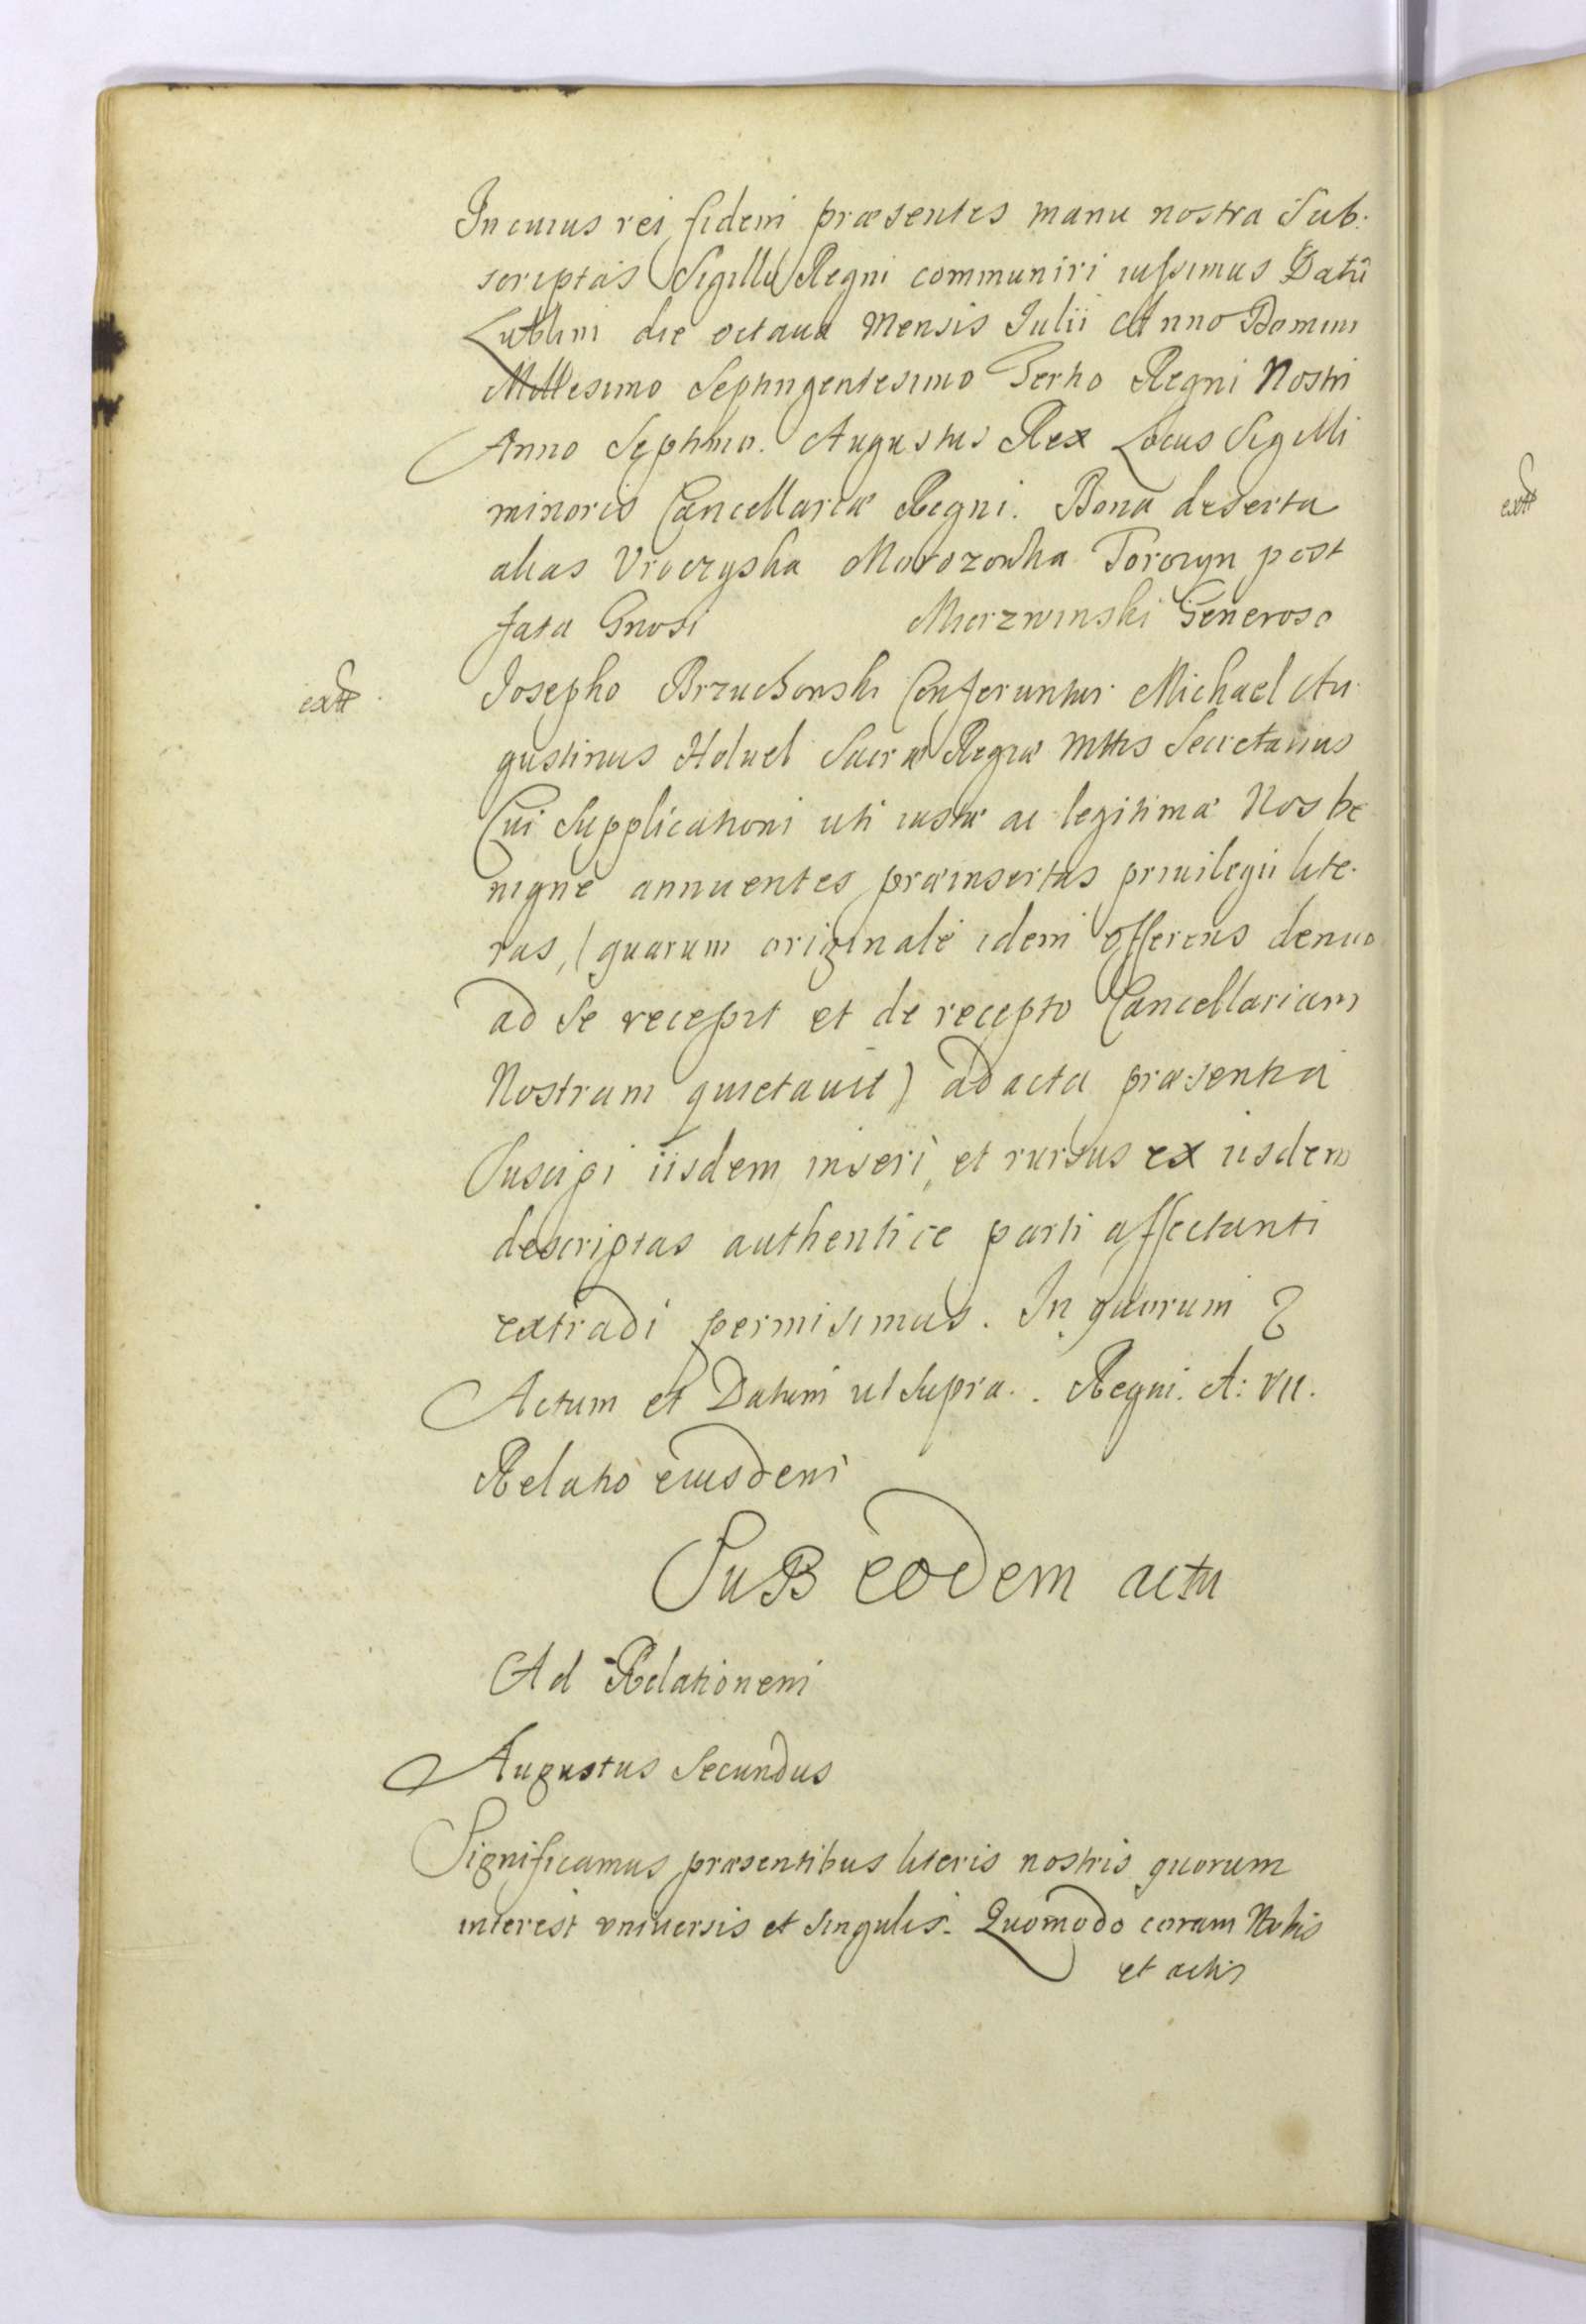 In cuius rei fidem præsentes manu nostra Sub-
scriptas Sigillo Regni communiri iussimus Datũ
Lublini die octaua Mensis Iulii Anno Domini
Millesimo Septingentesimo Tertio Regni Nostri
Anno Septimo. Augustus Rex Locus Sigilli
minoris Cancellariæ Regni. Bona deserta
alias Vroczyska Morozowka Toroczyn post
fata Gnosi Mierzwinski Generoso
extt
Josepho Brzuchowski Conferuntur Michael Au-
gustinus Holuel Sacræ Regiæ Mttis Secretarius
Cui Supplicationi uti iustæ ac legitimæ Nos be
nignè annuentes præinsertas priuilegii lite-
ras, (quarum originale idem Offerens denuo
ad Se recepit et de recepto Cancellariam
Nostram quietauit) ad acta præsentia
Suscipi iisdem inseri, et rursus ex iisdem
descriptas authentice parti affectanti
extradi permisimus. In quorum
Actum et Datum ut supra.. Regni. A: VII.
Relatio eiusdem
SuB eodem actu
Ad Relationem
Augustus Secundus
Significamus præsentibus literis nostris quorum
interest vniuersis et singulis. Quomodo coram Nobis
et actis
extt